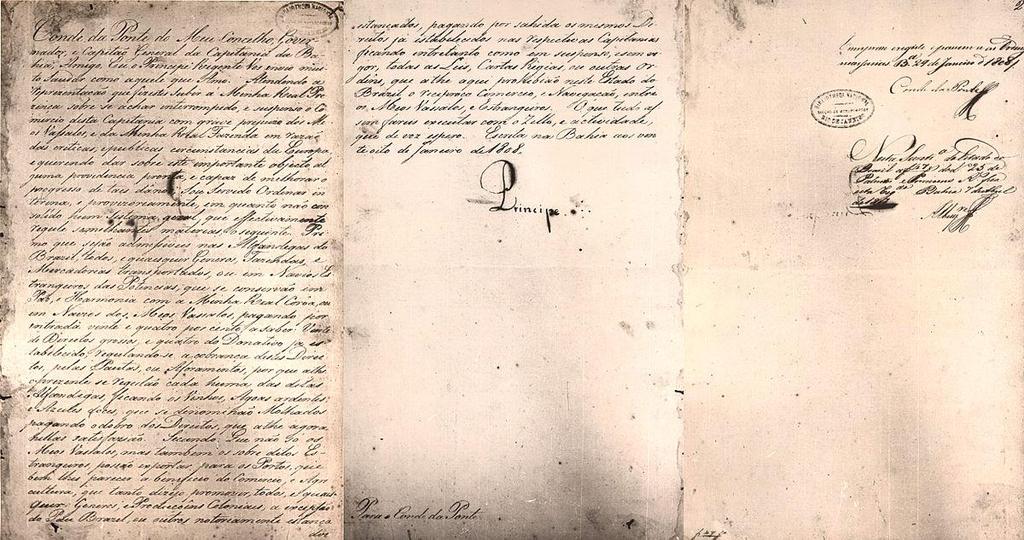 Conde da Ponte do Meu Conselho, Gover-
nador, e Capitaõ General da Capitania da Ba-
hia; Amigo. Eu o Principe Regente vos envio muito
Saudar como aquele que Amo. Attendendo a
Representaçaõ que fizesteis subir á Minha Real Pre-
zença sobre se achar interrompido, e suspenso o Co-
mercio desta Capitania com grave prejuizo dos Me-
os Vassallos, e da Minha Real Fazenda em razaõ
das criticas, e publicas circunstancias da Europa,
e querendo dar sobre este importante objecto al-
guma providencia prompta, e capaz de melhorar o
progresso de taes danos: Sou Servido Ordenar in-
terina, e provizoriamente, em quanto naõ con-
solido hum Systema geral, que effectivamente
regule semelhantes materias, o seguinte. Pri-
mo que sejaõ admissiveis nas Alfandegas do
Brazil todos, e quaesquer Generos, Fazendas, e
Mercadorias transportados, ou em Navios Es-
trangeiros das Potencias, que se conservaõ em
Paz, e Harmonia com a Minha Real Coroa, ou
em Navios dos Meos Vassallos, pagando por
entrada vinte e quatro por cento; a saber: Vinte
de Direitos grossos, e quatro do Donativo ja es-
tabelecido, regulando-se a cobrança destes Direi-
tos pelas Pautas, ou Aforamentos, por que athe
o prezente se regulaõ cada huma das ditas
Alfandegas, ficando os Vinhos, Agoas ardentes,
e Azeites doces, que se denominaõ Molhados
pagando o dobro dos Direitos, que athe agora
nellas satisfaziaõ. Secundo: Que naõ só os
Meos Vassallos, mas tambem os sobreditos Es-
trangeiros possaõ exportar para os Portos, que
bem lhes parecer a beneficio do Comercio, e Agri-
cultura, que tanto dezejo promover, todos, e quaes-
quer Generos, e Producçoens Coloniaes, a excepçaõ
do Páu Brazil, ou outros notoriamente estanca-
dos
estancados, pagando por sahida os mesmos Di-
reitos ja estabelecidos nas respectivas Capitanias
ficando entretanto como em suspenso, e sem vi-
gor, todas as Leis, Cartas Regias, ou outras Or-
dens, que athe aqui prohibiaõ neste Estado do
Brazil o reciproco Comercio, e Navegaçaõ, entre
os Meus Vassallos, e Estrangeiros. O que tudo as-
sim fareis executar com o zello, e actividade,
que de vós espero. Escrita na Bahia aos vin-
te oito de Janeiro de 1808.
Principe
Para o Conde da Ponte
de Janeiro de 1808
Conde da Ponte
BIBLIOTHECA NACIONAL
RIO DE JANEIRO
Bahia